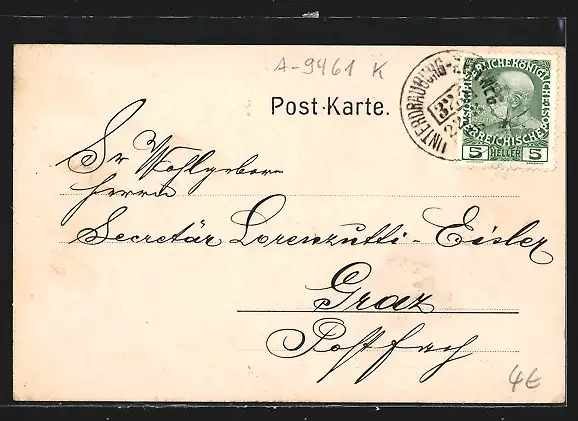 A-9461 K
Post-Karte.
UNTERDRAUBURG-
KAIS·KÖNIGL·ÖSTERREICHISCHE POST
5 HELLER 5
Sr Wohlgeboren
Herrn
Secretär Lorenzutti-Eisler
Graz
Postfach
4€